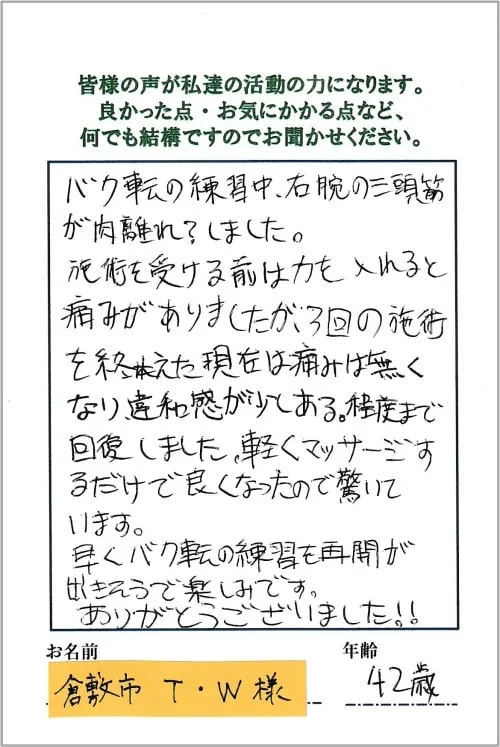 皆様の声が私達の活動の力になります。
良かった点・お気にかかる点など、
何でも結構ですのでお聞かせください。
バク転の練習中、右腕の三頭筋
が肉離れ?しました。
施術を受ける前は力を入れると
痛みがありましたが、3回の施術
を終えた現在は痛みは無く
なり違和感が少しある。程度まで
回復しました。軽くマッサージす
るだけで良くなったので驚いて
います。
早くバク転の練習も再開が
出きそうで楽しみです。
ありがとうございました!!
お名前 年齢
倉敷市 T・W様 42歳